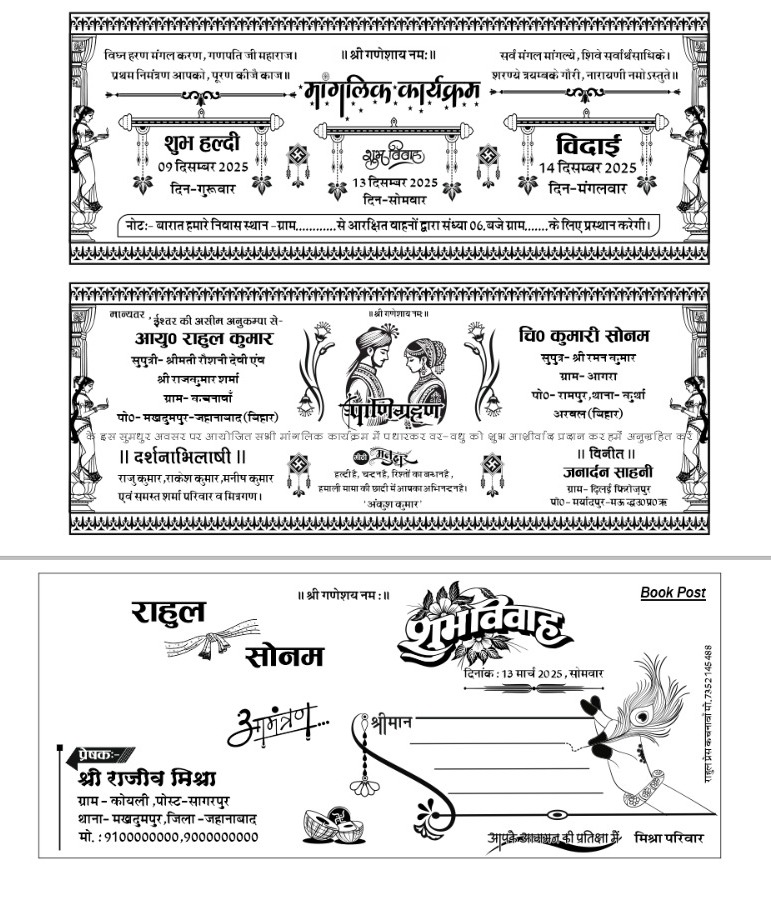 विघ्न हरण मंगल करण, गणपति जी महाराज।
प्रथम निमंत्रण आपको, पूरण कीजै काज॥
॥ श्री गणेशाय नम:॥
सर्व मंगल मांगल्ये, शिवे सर्वार्थसाधिके।
शरण्ये त्रयम्बके गौरी, नारायणी नमोऽस्तुते॥
मांगलिक कार्यक्रम
शुभ हल्दी
09 दिसम्बर 2025
दिन-गुरूवार
शुभ विवाह
13 दिसम्बर 2025
दिन-सोमवार
विदाई
14 दिसम्बर 2025
दिन-मंगलवार
नोट:- बारात हमारे निवास स्थान -ग्राम............से आरक्षित वाहनों द्वारा संध्या 06.बजे ग्राम.......के लिए प्रस्थान करेगी।
मान्यवर , ईश्वर की असीम अनुकम्पा से-
आयु० राहुल कुमार
सुपुत्री- श्रीमती रौशनी देवी एंव
श्री राजकुमार शर्मा
ग्राम- कचनावाँ
पो०- मखदुमपुर-जहानाबाद (बिहार)
॥श्री गणेशाय नमः॥
पाणिग्रहण
चि० कुमारी सोनम
सुपुत्र- श्री रमन कुमार
ग्राम- आगरा
पो०- रामपुर,थाना- कुर्था
अरबल (बिहार)
के इस सुमधुर अवसर पर आयोजित सभी मांगलिक कार्यक्रम में पधारकर वर-वधु को शुभ आर्शीवाद प्रदान कर हमें अनुग्रहित करें
॥ दर्शनाभिलाषी ॥
राजु कुमार,राकेश कुमार,मनीष कुमार
एवं समस्त शर्मा परिवार व मित्रगण।
मनुहार
हल्दी है, चन्दन है, रिश्तों का बन्धन है,
हमाली मामा की छादी में आपका अभिनन्दन है।
'अंकुश कुमार'
॥ विनीत ॥
जनार्दन साहनी
ग्राम- दिलई फिरोजपुर
राहुल
सोनम
॥ श्री गणेशय नम :॥
शुभ विवाह
Book Post
दिनांक : 13 मार्च 2025 , सोमवार
आमंत्रण...
श्रीमान
प्रेषक:-
श्री राजीव मिश्रा
ग्राम - कोयली ,पोस्ट-सागरपुर
थाना- मखदुमपुर,जिला -जहानाबाद
मो. : 9100000000,9000000000
राहुल प्रेस कचनावाँ मो. 7352145488
आपके आगमन की प्रतिक्षा में मिश्रा परिवार